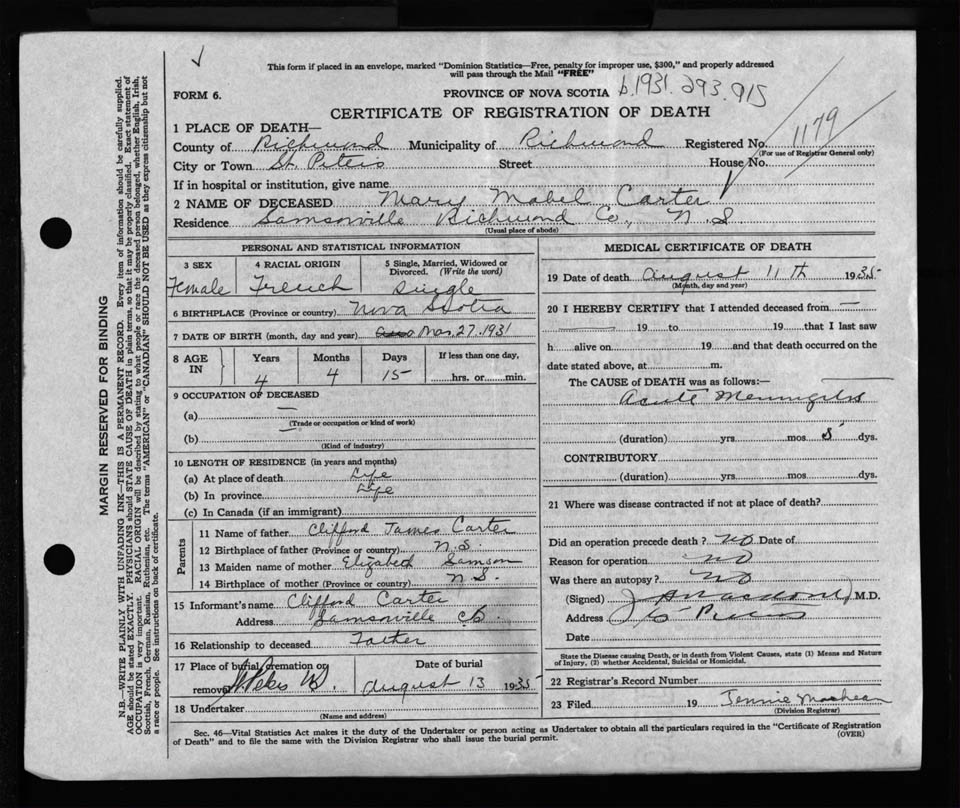 This form if placed in an envelope, marked "Dominion Statistics—Free, penalty for improper use, $300," and properly addressed
will pass through the Mail "FREE"
FORM 6.
PROVINCE OF NOVA SCOTIA b.1931.293.915
CERTIFICATE OF REGISTRATION OF DEATH
1 PLACE OF DEATH—
County of Richmond Municipality of Richmond Registered No. 1179
(For use of Registrar General only)
City or Town St. Peters Street House No.
If in hospital or institution, give name
2 NAME OF DECEASED Mary Mabel Carter
Residence Samsonville Richmond Co., N.S
(Usual place of abode)
PERSONAL AND STATISTICAL INFORMATION
3 SEX 4 RACIAL ORIGIN 5 Single, Married, Widowed or
Divorced. (Write the word)
Female French Single
6 BIRTHPLACE (Province or country) Nova Scotia
7 DATE OF BIRTH (month, day and year) Mar. 27. 1931
8 AGE IN Years Months Days If less than one day,
4 4 15 hrs. or min.
9 OCCUPATION OF DECEASED
(a) —
(Trade or occupation or kind of work)
(b)
(Kind of industry)
10 LENGTH OF RESIDENCE (in years and months)
(a) At place of death Life
(b) In province Life
(c) In Canada (if an immigrant)
Parents
11 Name of father Clifford James Carter
12 Birthplace of father (Province or country) N.S.
13 Maiden name of mother Elizabeth Samson
14 Birthplace of mother (Province or country) N.S.
15 Informant's name Clifford Carter
Address Samsonville C.B.
16 Relationship to deceased
17 Place of burial, cremation or Date of burial
removal August 13 1935
18 Undertaker
(Name and address)
MEDICAL CERTIFICATE OF DEATH
19 Date of death August 11th 1935
(Month, day and year)
20 I HEREBY CERTIFY that I attended deceased from —
19 to 19 that I last saw
h alive on 19 and that death occurred on the
date stated above, at m.
The CAUSE OF DEATH was as follows:—
Acute Meningitis
(duration) yrs. mos. 8 dys.
CONTRIBUTORY
(duration) yrs. mos. dys.
21 Where was disease contracted if not at place of death?
Did an operation precede death? No Date of
Reason for operation No
Was there an autopsy? No
(Signed) M.D.
Address
Date
State the Disease causing Death, or in death from Violent Causes, state (1) Means and Nature
of Injury, (2) whether Accidental, Suicidal or Homicidal.
22 Registrar's Record Number
23 Filed 19 Jennie
(Division Registrar)
Sec. 46—Vital Statistics Act makes it the duty of the Undertaker or person acting as Undertaker to obtain all the particulars required in the "Certificate of Registration
of Death" and to file the same with the Division Registrar who shall issue the burial permit.
(OVER)
MARGIN RESERVED FOR BINDING
N.B.—WRITE PLAINLY WITH UNFADING INK—THIS IS A PERMANENT RECORD. Every item of information should be carefully supplied.
AGE should be stated EXACTLY. PHYSICIANS should STATE CAUSE OF DEATH in plain terms, so that it may be properly classified. Exact statement of
OCCUPATION is very important. RACIAL ORIGIN will be described by stating to what people or race the deceased person belonged, whether English, Irish,
Scottish, French, German, Russian, Ruthenian, etc. The terms "AMERICAN" or "CANADIAN" SHOULD NOT BE USED as they express citizenship but not
a race or people. See instructions on back of certificate.